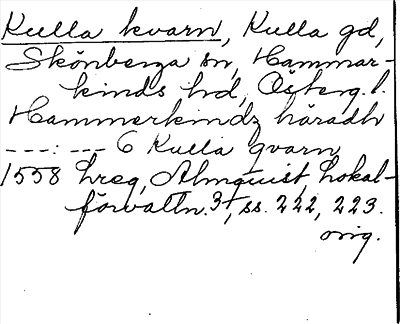 Kulla kvarn, Kulla gd,
Skönberga sn, Hammar-
kinds hd, Österg. l.
Hammerkindz häradh
---:--- 6 Kulla qvarn
1558 hreg, Almquist, Lokal-
förvaltn. 34, ss. 222, 223.
orig.